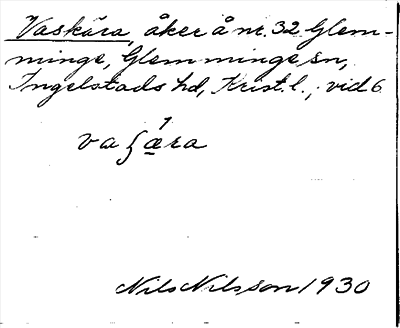 Vaskära, åker å nr. 32 Glem-
minge, Glemminge sn,
Ingelstads hd, Krist. l., vid 6
Nils Nilsson 1930